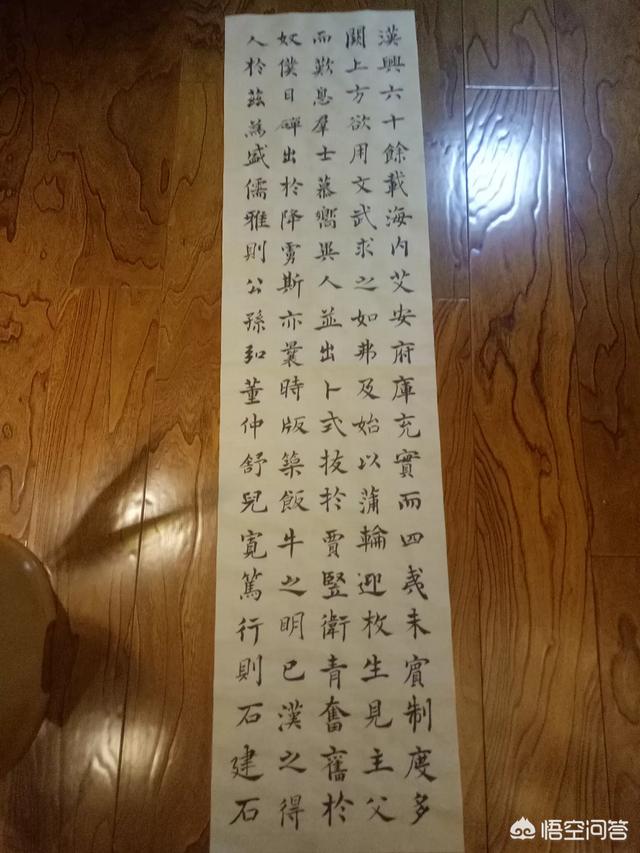 漢興六十餘載海内艾安府庫充實而四夷未賓制度多
闕上方欲用文武求之如弗及始以蒲輪迎枚生見主父
而歎息羣士慕嚮異人並出卜式拔於賈豎衛青奮舊於
奴僕日磾出於降虜斯亦曩時版築飯牛之明已漢之得
人於茲為盛儒雅則公孫弘董仲舒兒寛篤行則石建石
悟空问答